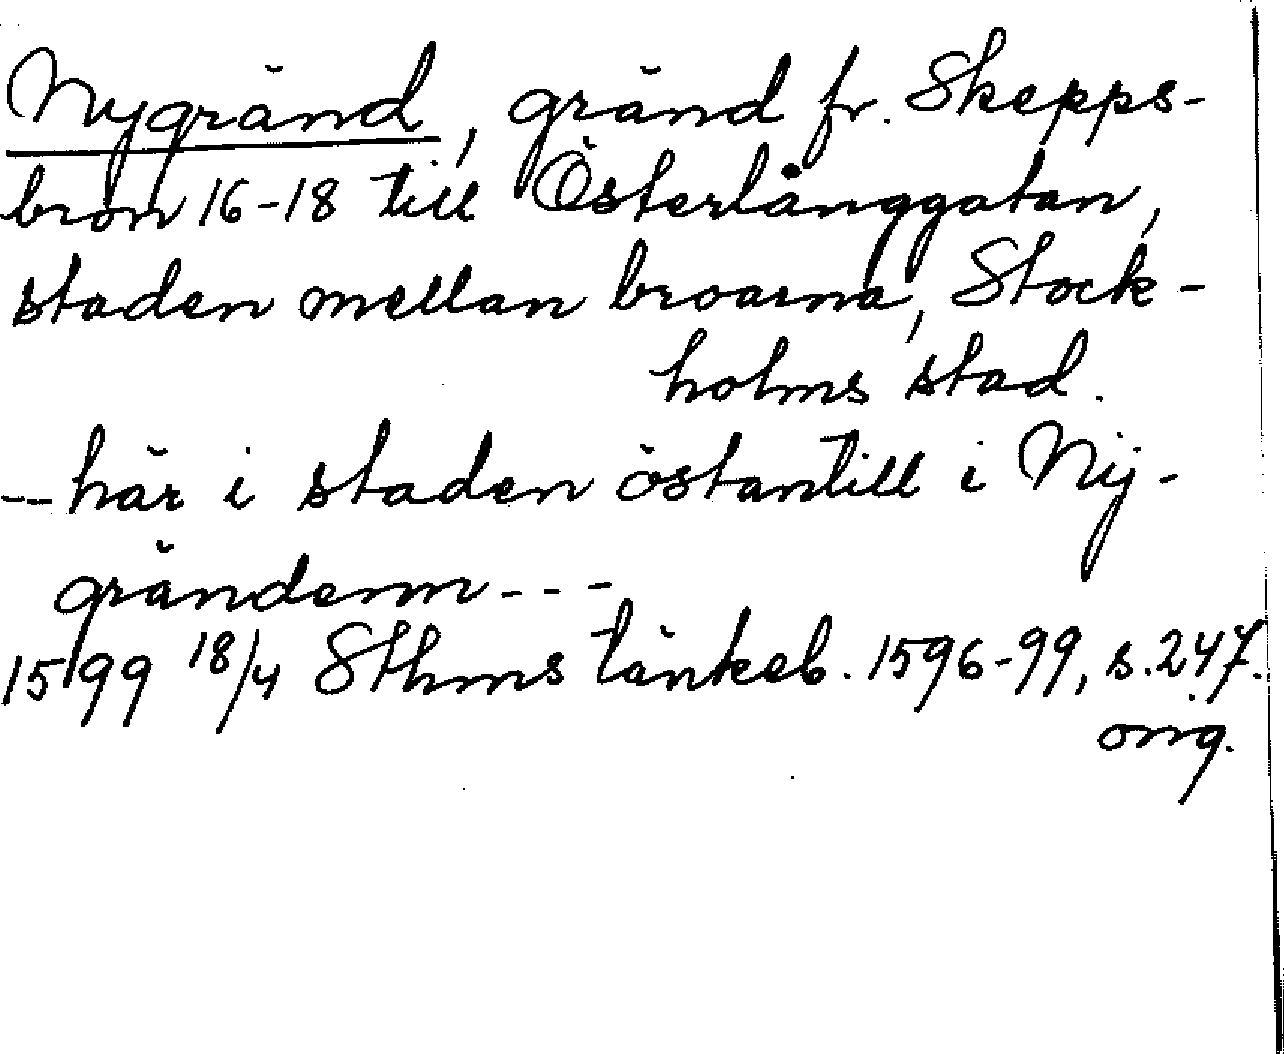 Nygränd, gränd fr. Skepps-
bron 16-18 till Österlånggatan,
staden mellan broarna, Stock-
holms stad.
-- här i staden östantill i Nij-
grändenn - - -
1599 18/4 Sthms tänkeb. 1596-99, s. 247.
orig.